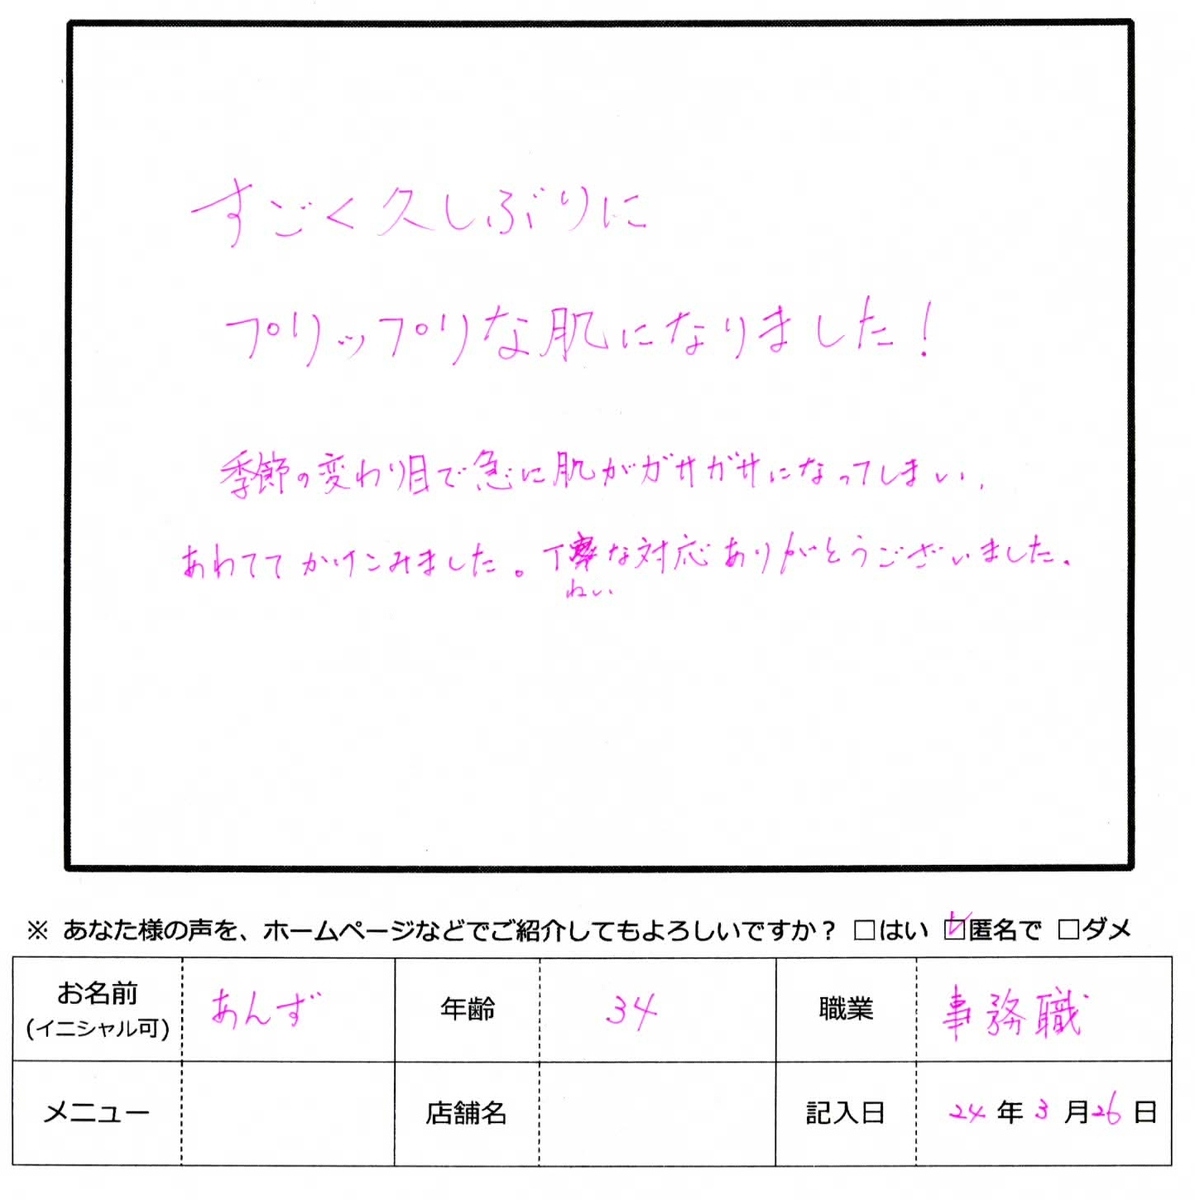 すごく久しぶりに
プリップリな肌になりました!
季節の変わり目で急に肌がガサガサになってしまい、
あわててかけこみました。丁寧な対応ありがとうございました。
ねい
※ あなた様の声を、ホームページなどでご紹介してもよろしいですか? □はい ☑匿名で □ダメ
お名前
(イニシャル可)
あんず
年齢
34
職業
事務職
メニュー
店舗名
記入日
24年3月26日